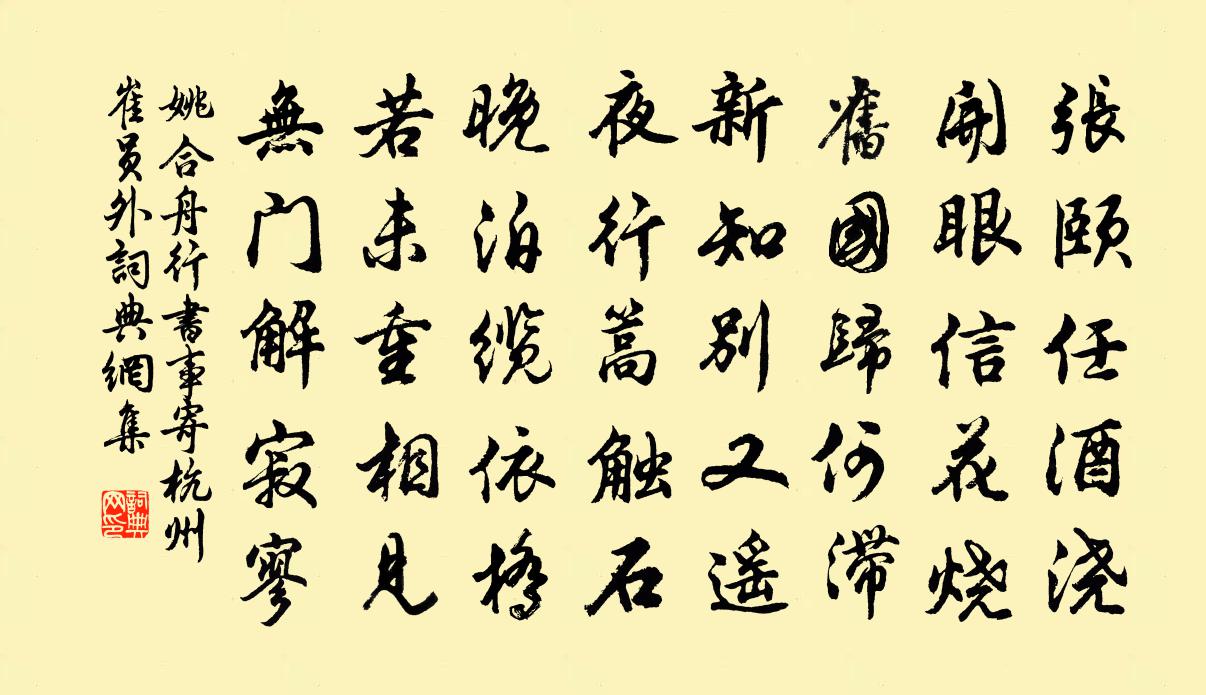 張颐任酒浇
開眼信花烧
舊國歸何滞
新知别又遥
夜行篙触石
晚泊缆依橋
若未重相見
無門解寂寥
姚合舟行書事寄杭州
崔員外詞典網集
詞典
网印